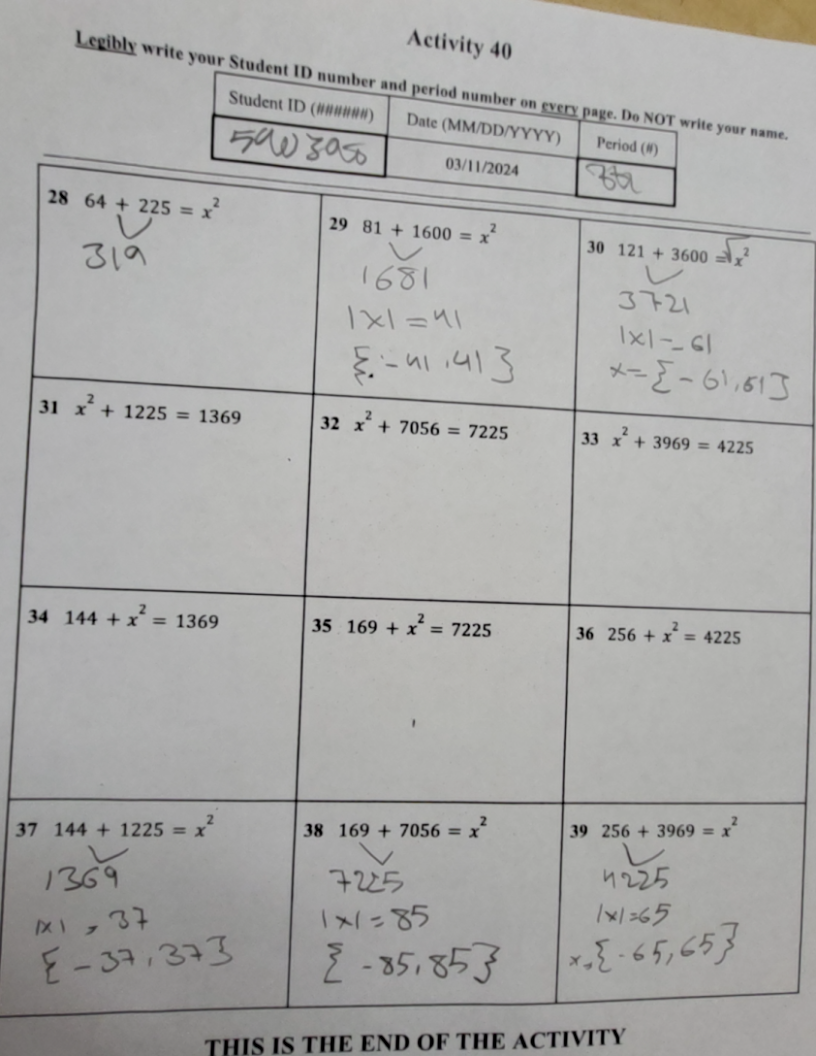 Activity 40
Legibly write your Student ID number and period number on every page. Do NOT write your name.
Student ID (######) Date (MM/DD/YYYY) Period (#)
03/11/2024
28 64 + 225 = x²
319
29 81 + 1600 = x²
1681
|x| = 41
{-41, 41}
30 121 + 3600 = √x²
3721
|x| = 61
x = {-61, 61}
31 x² + 1225 = 1369
32 x² + 7056 = 7225
33 x² + 3969 = 4225
34 144 + x² = 1369
35 169 + x² = 7225
36 256 + x² = 4225
37 144 + 1225 = x²
1369
|x| = 37
{-37, 37}
38 169 + 7056 = x²
7225
|x| = 85
{-85, 85}
39 256 + 3969 = x²
4225
|x| = 65
x = {-65, 65}
THIS IS THE END OF THE ACTIVITY